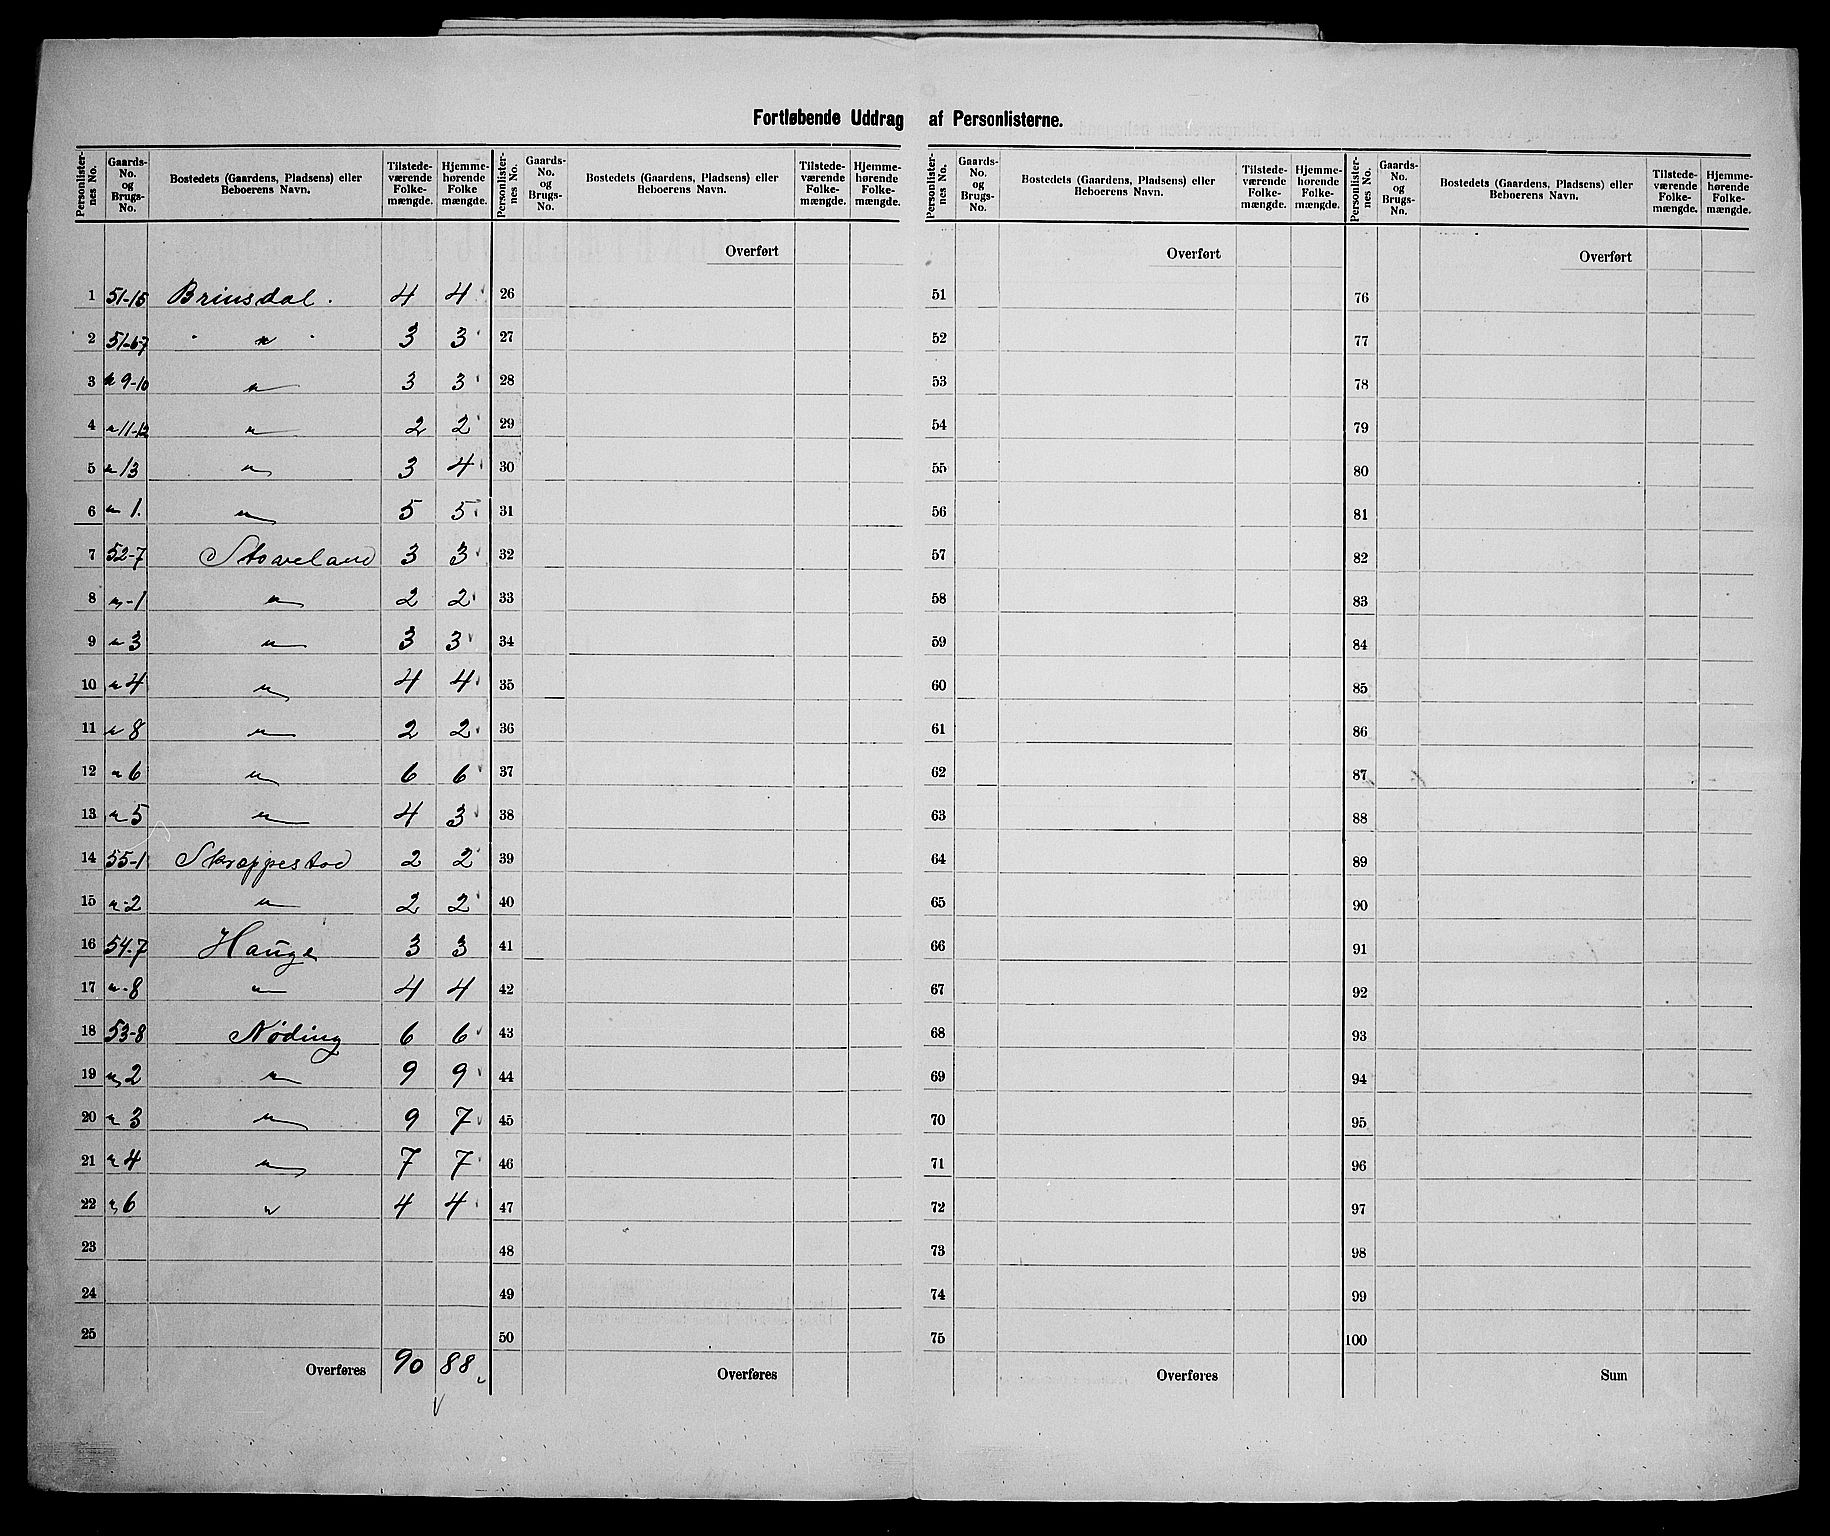 Fortløbende Uddrag af Personlisterne.
Personlisternes No. Gaards-No. og Brugs-No. Bostedets (Gaardens, Pladsens) eller Beboerens Navn. Tilstedeværende Folkemængde. Hjemmehørende Folkemængde.
Personlisternes No. Gaards-No. og Brugs-No. Bostedets (Gaardens, Pladsens) eller Beboerens Navn. Tilstedeværende Folkemængde. Hjemmehørende Folkemængde.
Personlisternes No. Gaards-No. og Brugs-No. Bostedets (Gaardens, Pladsens) eller Beboerens Navn. Tilstedeværende Folkemængde. Hjemmehørende Folkemængde.
Personlisternes No. Gaards-No. og Brugs-No. Bostedets (Gaardens, Pladsens) eller Beboerens Navn. Tilstedeværende Folkemængde. Hjemmehørende Folkemængde.
Overført Overført Overført
1 51-15 Brinsdal. 4 4 26 51 76
2 51-6-7 " 3 3 27 52 77
3 " 9-10 " 3 3 28 53 78
4 " 11-12 " 2 2 29 54 79
5 " 13 " 3 4 30 55 80
6 " 1. " 5 5 31 56 81
7 52-7 Stoveland 3 3 32 57 82
8 "-1 " 2 2 33 58 83
9 " 3 " 3 3 34 59 84
10 " 4 " 4 4 35 60 85
11 " 8 " 2 2 36 61 86
12 " 6 " 6 6 37 62 87
13 " 5 " 4 3 38 63 88
14 55-1 Skræppestad 2 2 39 64 89
15 "-2 " 2 2 40 65 90
16 54-7 Hauge 3 3 41 66 91
17 "-8 " 4 4 42 67 92
18 53-8 Nøding 6 6 43 68 93
19 " 2 " 9 9 44 69 94
20 " 3 " 9 7 45 70 95
21 " 4 " 7 7 46 71 96
22 " 6 " 4 4 47 72 97
23 48 73 98
24 49 74 99
25 50 75 100
Overføres 90 88 Overføres Overføres Sum